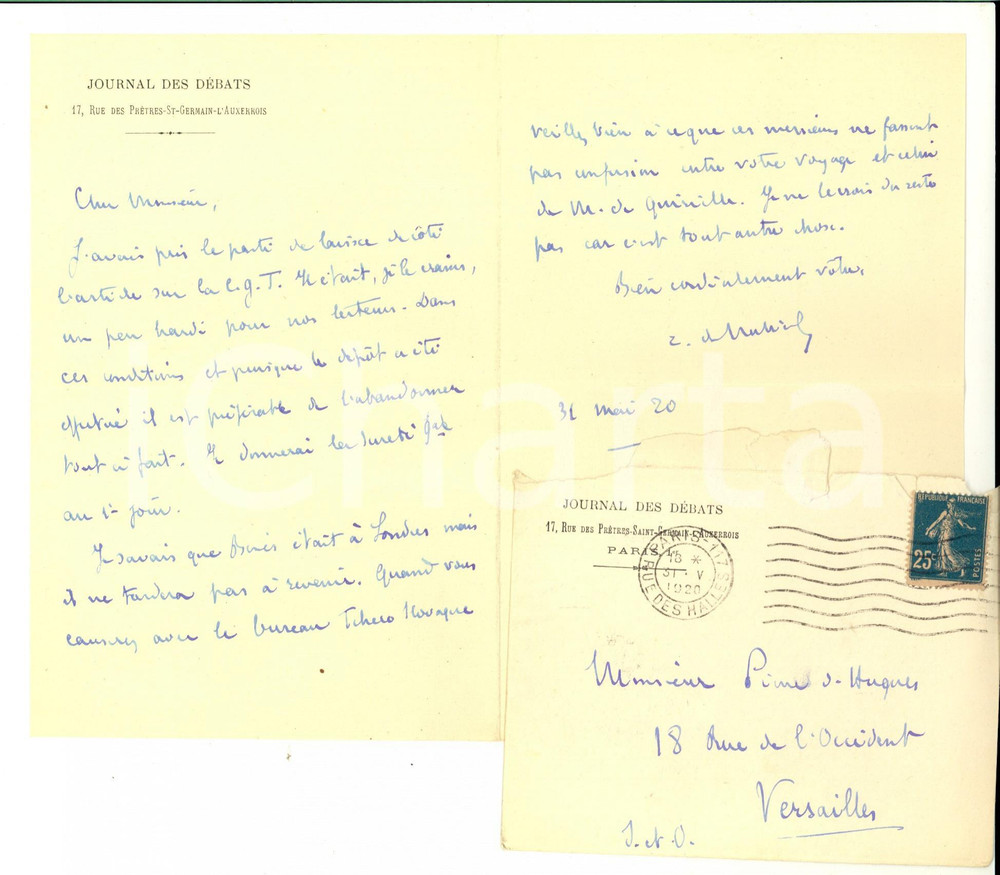 JOURNAL DES DÉBATS
17, RUE DES PRÊTRES-ST-GERMAIN-L'AUXERROIS
Cher Monsieur,
J'avais pris le parti de laisser de côté
l'article sur la C.G.T. Il était, je le crains,
un peu hardi pour nos lecteurs. Dans
ces conditions et puisque le dépôt a été
effectué il est préférable de l'abandonner
tout à fait. Je donnerai la Sureté Gale
au 1er jour.
Je savais que était à Londres mais
il ne tardera pas à revenir. Quand vous
causerez avec le bureau Tcheco Slovaque
veillez bien à ce que ces messieurs ne fassent
pas confusion entre votre voyage et celui
de M. de Quirielle. Je ne le crois du reste
pas car c'est tout autre chose.
Bien cordialement vôtre,
31 mai 20
JOURNAL DES DÉBATS
17, RUE DES PRÊTRES-SAINT-GERMAIN-L'AUXERROIS
PARIS
PARIS-117
18 *
31 · V
1920
RUE DES HALLES
RÉPUBLIQUE FRANÇAISE
25c
POSTES
Monsieur d'Hugues
18 Rue de l'Occident
Versailles
S. et O.
iCharta